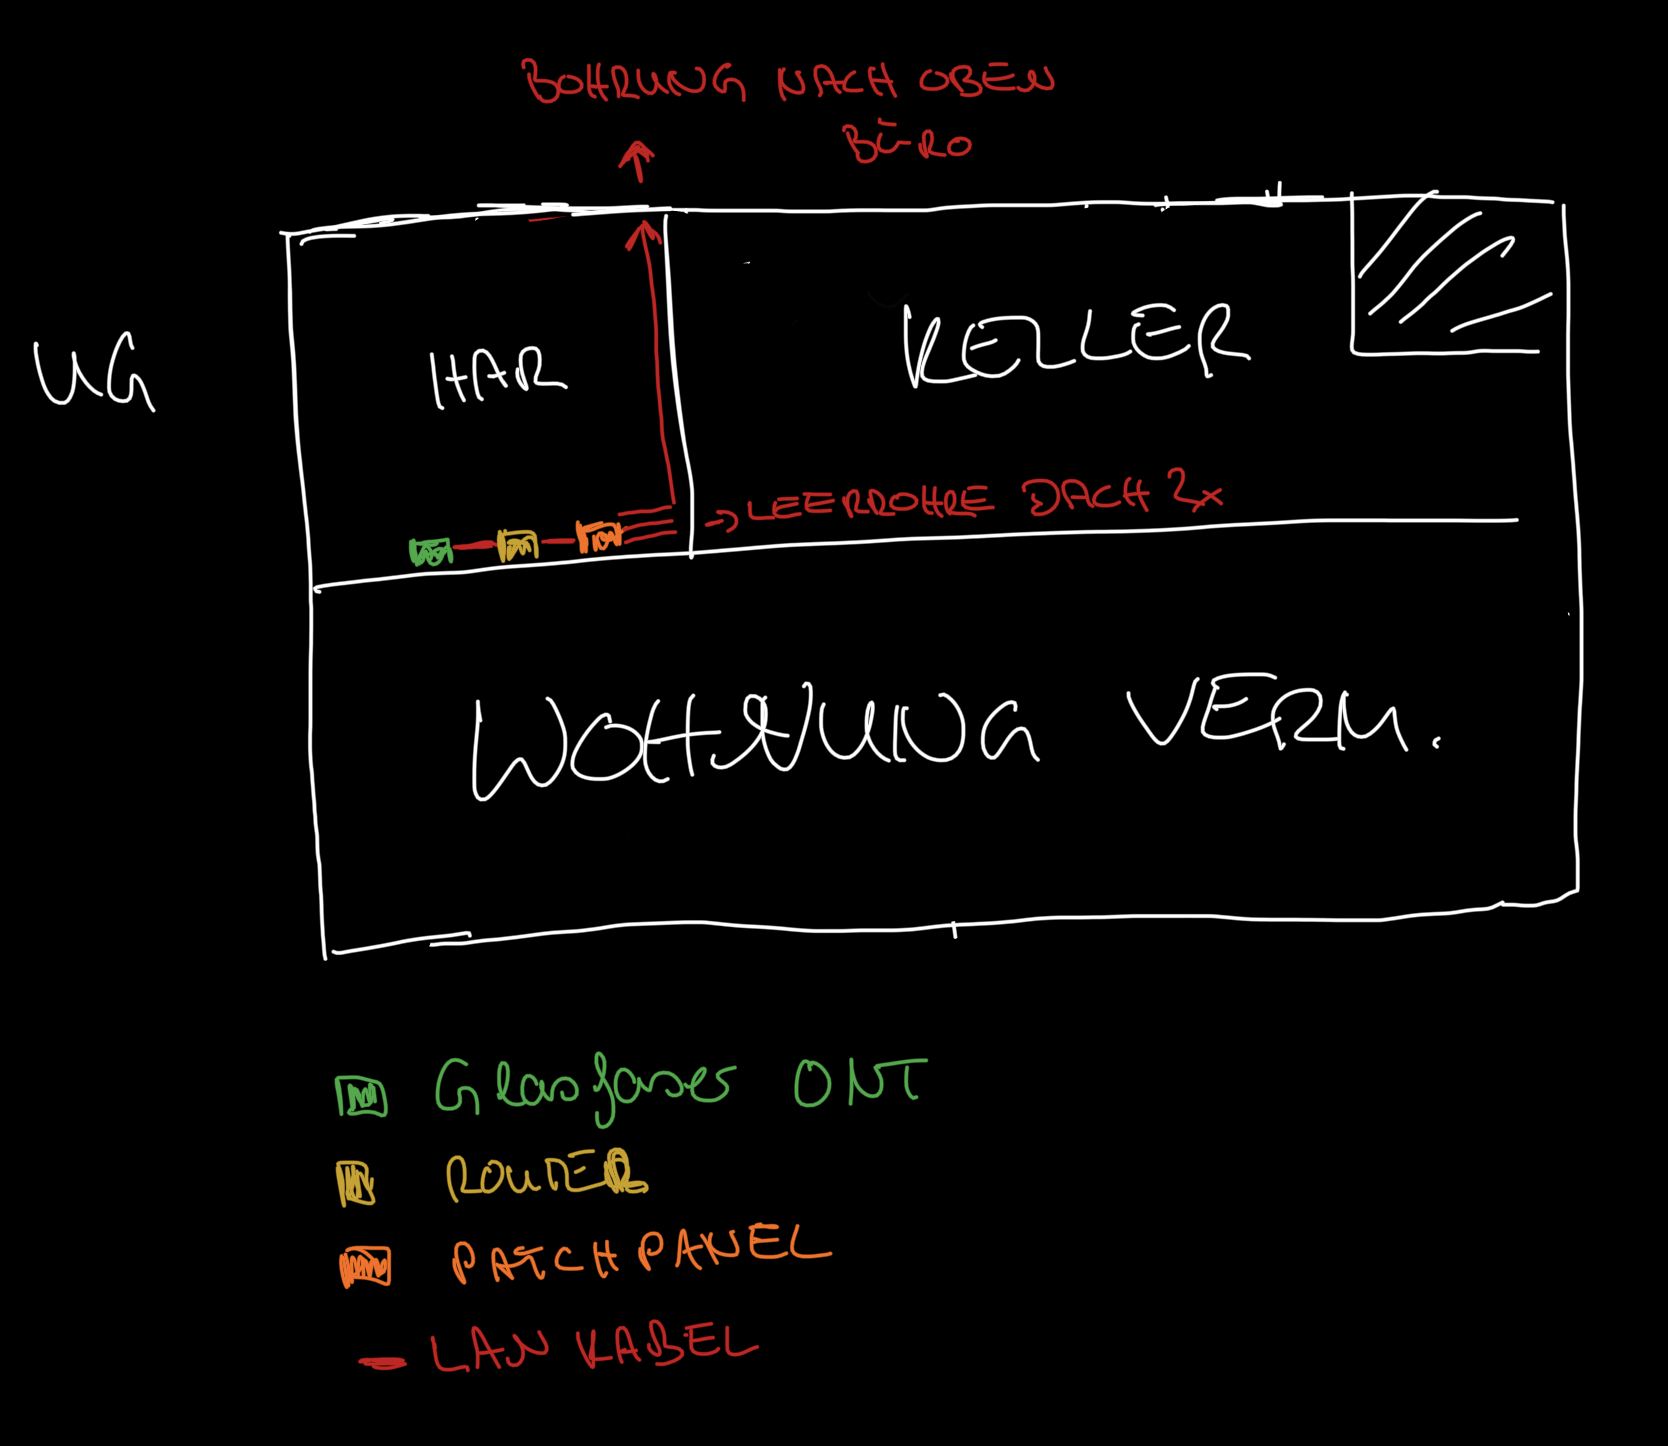 BOHRUNG NACH OBEN
BÜRO
UG
HAR
KELLER
→ LEERROHRE DACH 2x
WOHNUNG VERM.
Glasfaser ONT
ROUTER
PATCHPANEL
LAN KABEL